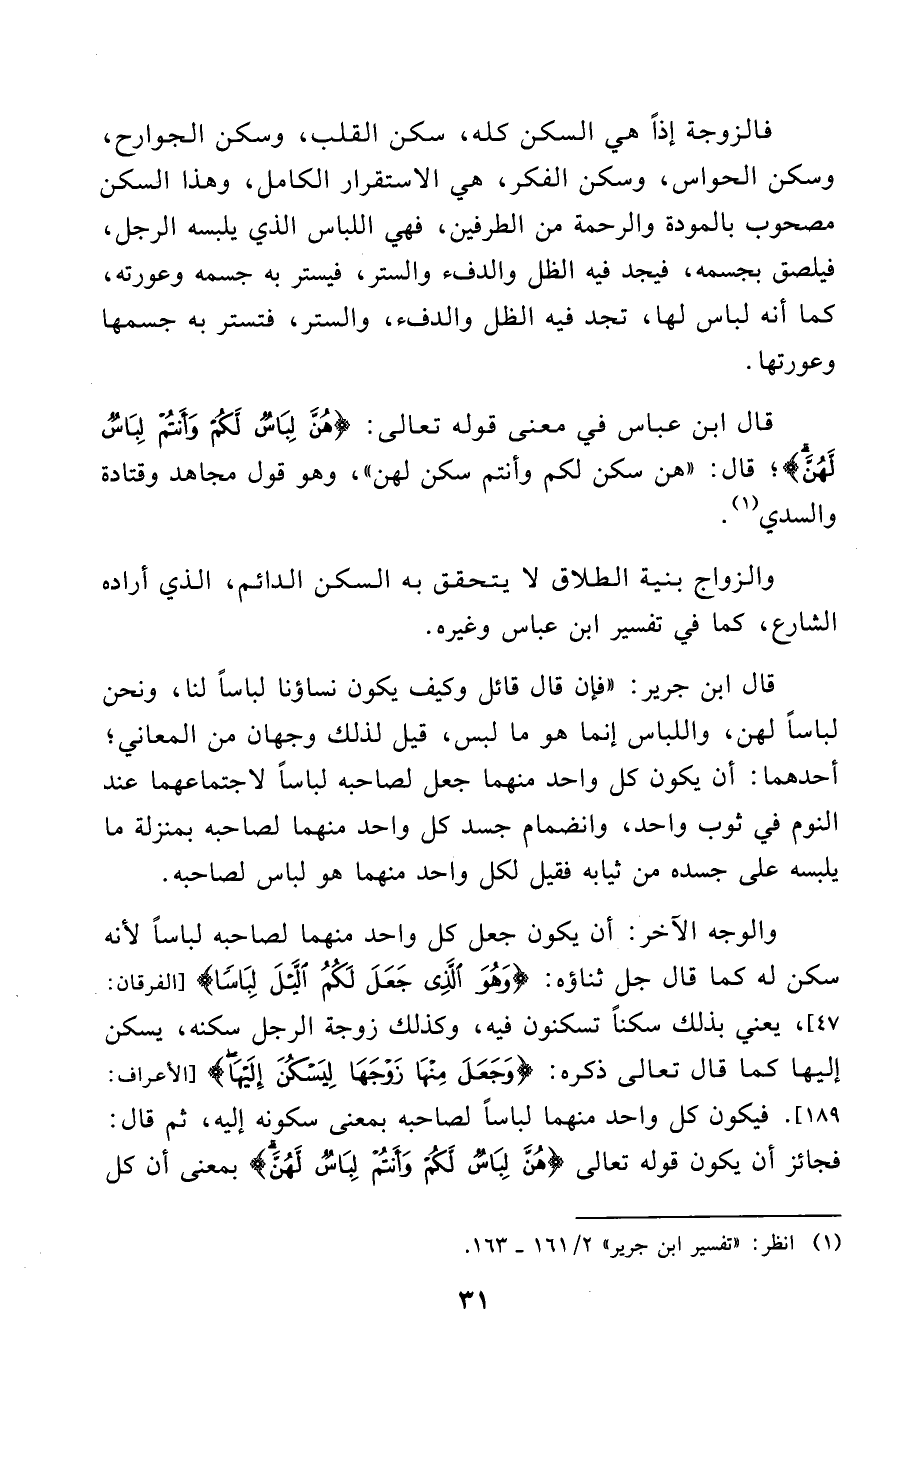 فالزوجة إذاً هي السكن كله، سكن القلب، وسكن الجوارح،
وسكن الحواس، وسكن الفكر، هي الاستقرار الكامل، وهذا السكن
مصحوب بالمودة والرحمة من الطرفين، فهي اللباس الذي يلبسه الرجل،
فيلصق بجسمه، فيجد فيه الظل والدفء والستر، فيستر به جسمه وعورته،
كما أنه لباس لها، تجد فيه الظل والدفء، والستر، فتستر به جسمها
وعورتها.
قال ابن عباس في معنى قوله تعالى: ﴿هُنَّ لِبَاسٌ لَّكُمْ وَأَنتُمْ لِبَاسٌ
لَّهُنَّۗ﴾؛ قال: «هن سكن لكم وأنتم سكن لهن»، وهو قول مجاهد وقتادة
والسدي(١).
والزواج بنية الطلاق لا يتحقق به السكن الدائم، الذي أراده
الشارع، كما في تفسير ابن عباس وغيره.
قال ابن جرير: «فإن قال قائل وكيف يكون نساؤنا لباساً لنا، ونحن
لباساً لهن، واللباس إنما هو ما لبس، قيل لذلك وجهان من المعاني؛
أحدهما: أن يكون كل واحد منهما جعل لصاحبه لباساً لاجتماعهما عند
النوم في ثوب واحد، وانضمام جسد كل واحد منهما لصاحبه بمنزلة ما
يلبسه على جسده من ثيابه فقيل لكل واحد منهما هو لباس لصاحبه.
والوجه الآخر: أن يكون جعل كل واحد منهما لصاحبه لباساً لأنه
سكن له كما قال جل ثناؤه: ﴿وَهُوَ ٱلَّذِى جَعَلَ لَكُمُ ٱلَّيْلَ لِبَاسًا﴾ [الفرقان:
٤٧]، يعني بذلك سكناً تسكنون فيه، وكذلك زوجة الرجل سكنه، يسكن
إليها كما قال تعالى ذكره: ﴿وَجَعَلَ مِنْهَا زَوْجَهَا لِيَسْكُنَ إِلَيْهَاۖ﴾ [الأعراف:
١٨٩]. فيكون كل واحد منهما لباساً لصاحبه بمعنى سكونه إليه، ثم قال:
فجائز أن يكون قوله تعالى ﴿هُنَّ لِبَاسٌ لَّكُمْ وَأَنتُمْ لِبَاسٌ لَّهُنَّۗ﴾ بمعنى أن كل
(١) انظر: «تفسير ابن جرير» ٢/ ١٦١ ـ ١٦٣.
٣١